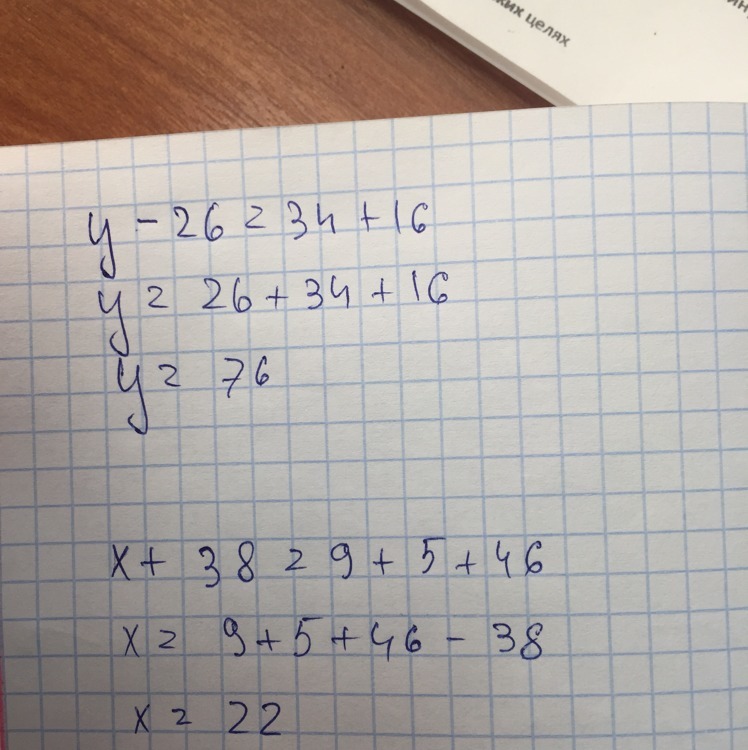 ких целях
y - 26 = 34 + 16
y = 26 + 34 + 16
y = 76
x + 38 = 9 + 5 + 46
x = 9 + 5 + 46 - 38
x = 22